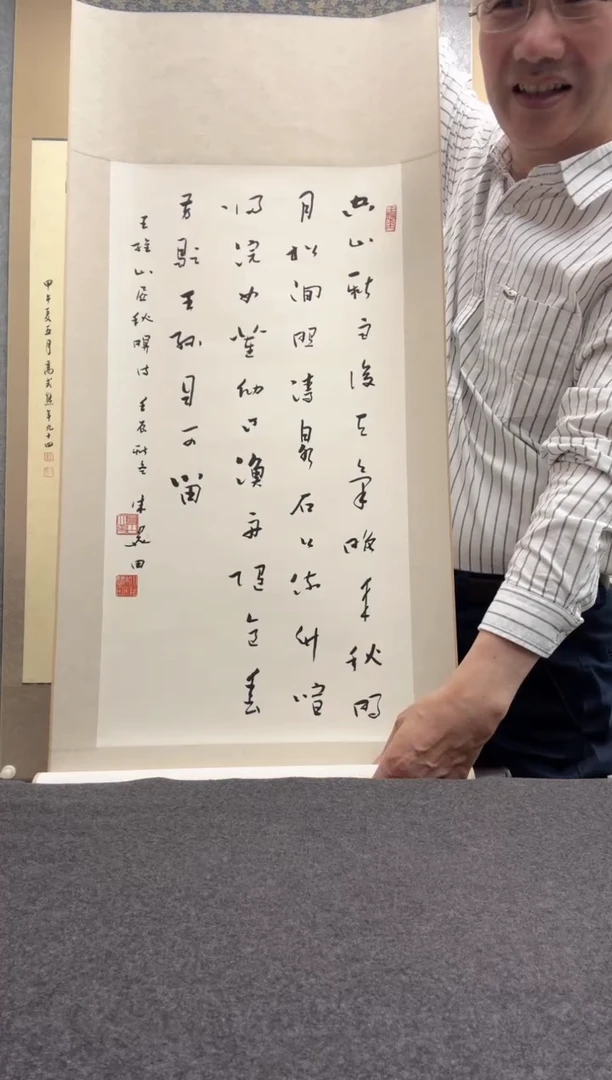 空山新雨後天氣晚来秋明
月松間照清泉石上流竹喧
歸浣女蓮動下漁舟隨意春
芳歇王孫自可留
王維山居秋暝诗 壬辰 朱 田
甲午夏五月高式熊年九十四